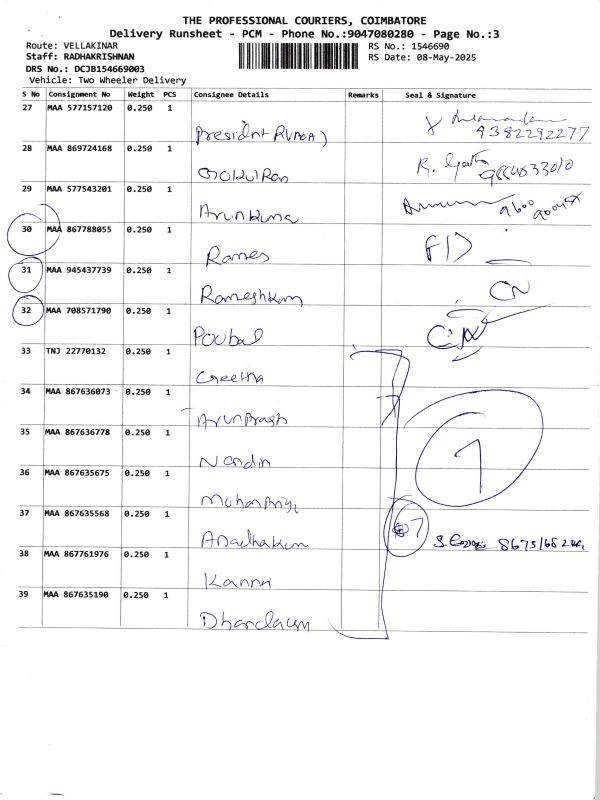 THE PROFESSIONAL COURIERS, COIMBATORE
Delivery Runsheet - PCM - Phone No.:9047080280 - Page No.:3
Route: VELLAKINAR RS No.: 1546690
Staff: RADHAKRISHNAN RS Date: 08-May-2025
DRS No.: DCJB154669003
Vehicle: Two Wheeler Delivery
S No Consignment No Weight PCS Consignee Details Remarks Seal & Signature
27 MAA 577157120 0.250 1
President 9382292277
28 MAA 869724168 0.250 1
GokulRan R.
29 MAA 577543201 0.250 1
Arunkuma 9600
30 MAA 867788055 0.250 1
Rames
31 MAA 945437739 0.250 1
Rameshkum CN
32 MAA 708571790 0.250 1
Poobal CN
33 TNJ 22770132 0.250 1
Geetha
34 MAA 867636073 0.250 1
Arunprash
35 MAA 867636778 0.250 1
Nandin 7
36 MAA 867635675 0.250 1
37 MAA 867635568 0.250 1
7 S.
38 MAA 867761976 0.250 1
Kanna
39 MAA 867635190 0.250 1